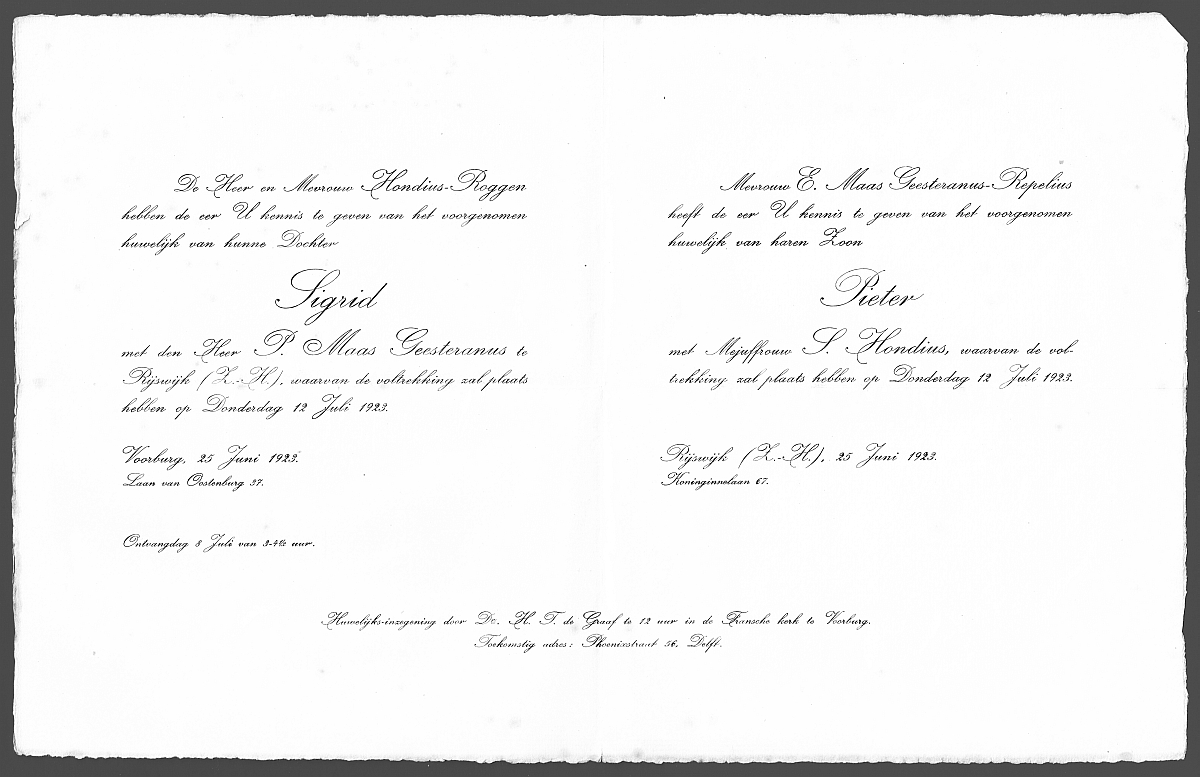 De Heer en Mevrouw Hondius-Roggen
hebben de eer U kennis te geven van het voorgenomen
huwelijk van hunne Dochter
Sigrid
met den Heer P. Maas Geesteranus te
Rijswijk (Z.-H.), waarvan de voltrekking zal plaats
hebben op Donderdag 12 Juli 1923.
Voorburg, 25 Juni 1923.
Laan van Oostenburg 37.
Ontvangdag 8 Juli van 3-4½ uur.
Mevrouw E. Maas Geesteranus-Repelius
heeft de eer U kennis te geven van het voorgenomen
huwelijk van haren Zoon
Pieter
met Mejuffrouw S. Hondius, waarvan de vol-
trekking zal plaats hebben op Donderdag 12 Juli 1923.
Rijswijk (Z.-H.), 25 Juni 1923.
Koninginnelaan 67.
Huwelijks-inzegening door Dr. H. T. de Graaf te 12 uur in de Fransche kerk te Voorburg.
Toekomstig adres: Phoenixstraat 56, Delft.